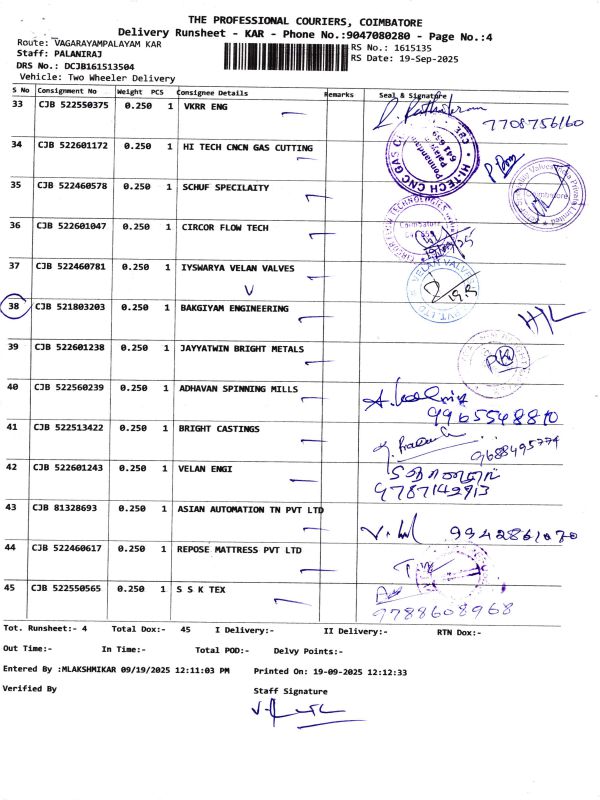 THE PROFESSIONAL COURIERS, COIMBATORE
Delivery Runsheet - KAR - Phone No.:9047080280 - Page No.:4
Route: VAGARAYAMPALAYAM KAR
RS No.: 1615135
Staff: PALANIRAJ
RS Date: 19-Sep-2025
DRS No.: DCJB161513504
Vehicle: Two Wheeler Delivery
S No Consignment No Weight PCS Consignee Details Remarks Seal & Signature
33 CJB 522550375 0.250 1 VKRR ENG
7708756160
34 CJB 522601172 0.250 1 HI TECH CNCN GAS CUTTING
HI.TECH CNC GAS
641 659
35 CJB 522460578 0.250 1 SCHUF SPECILAITY
Coimbatore
36 CJB 522601047 0.250 1 CIRCOR FLOW TECH
Coimbatore
37 CJB 522460781 0.250 1 IYSWARYA VELAN VALVES
VELAN VALVES
19.9
38 CJB 521803203 0.250 1 BAKGIYAM ENGINEERING
39 CJB 522601238 0.250 1 JAYYATWIN BRIGHT METALS
40 CJB 522560239 0.250 1 ADHAVAN SPINNING MILLS
9965548810
41 CJB 522513422 0.250 1 BRIGHT CASTINGS
9688495774
42 CJB 522601243 0.250 1 VELAN ENGI
9787142913
43 CJB 81328693 0.250 1 ASIAN AUTOMATION TN PVT LTD
9942861070
44 CJB 522460617 0.250 1 REPOSE MATTRESS PVT LTD
45 CJB 522550565 0.250 1 S S K TEX
9788608968
Tot. Runsheet:- 4 Total Dox:- 45 I Delivery:- II Delivery:- RTN Dox:-
Out Time:- In Time:- Total POD:- Delvy Points:-
Entered By :MLAKSHMIKAR 09/19/2025 12:11:03 PM Printed On: 19-09-2025 12:12:33
Verified By Staff Signature